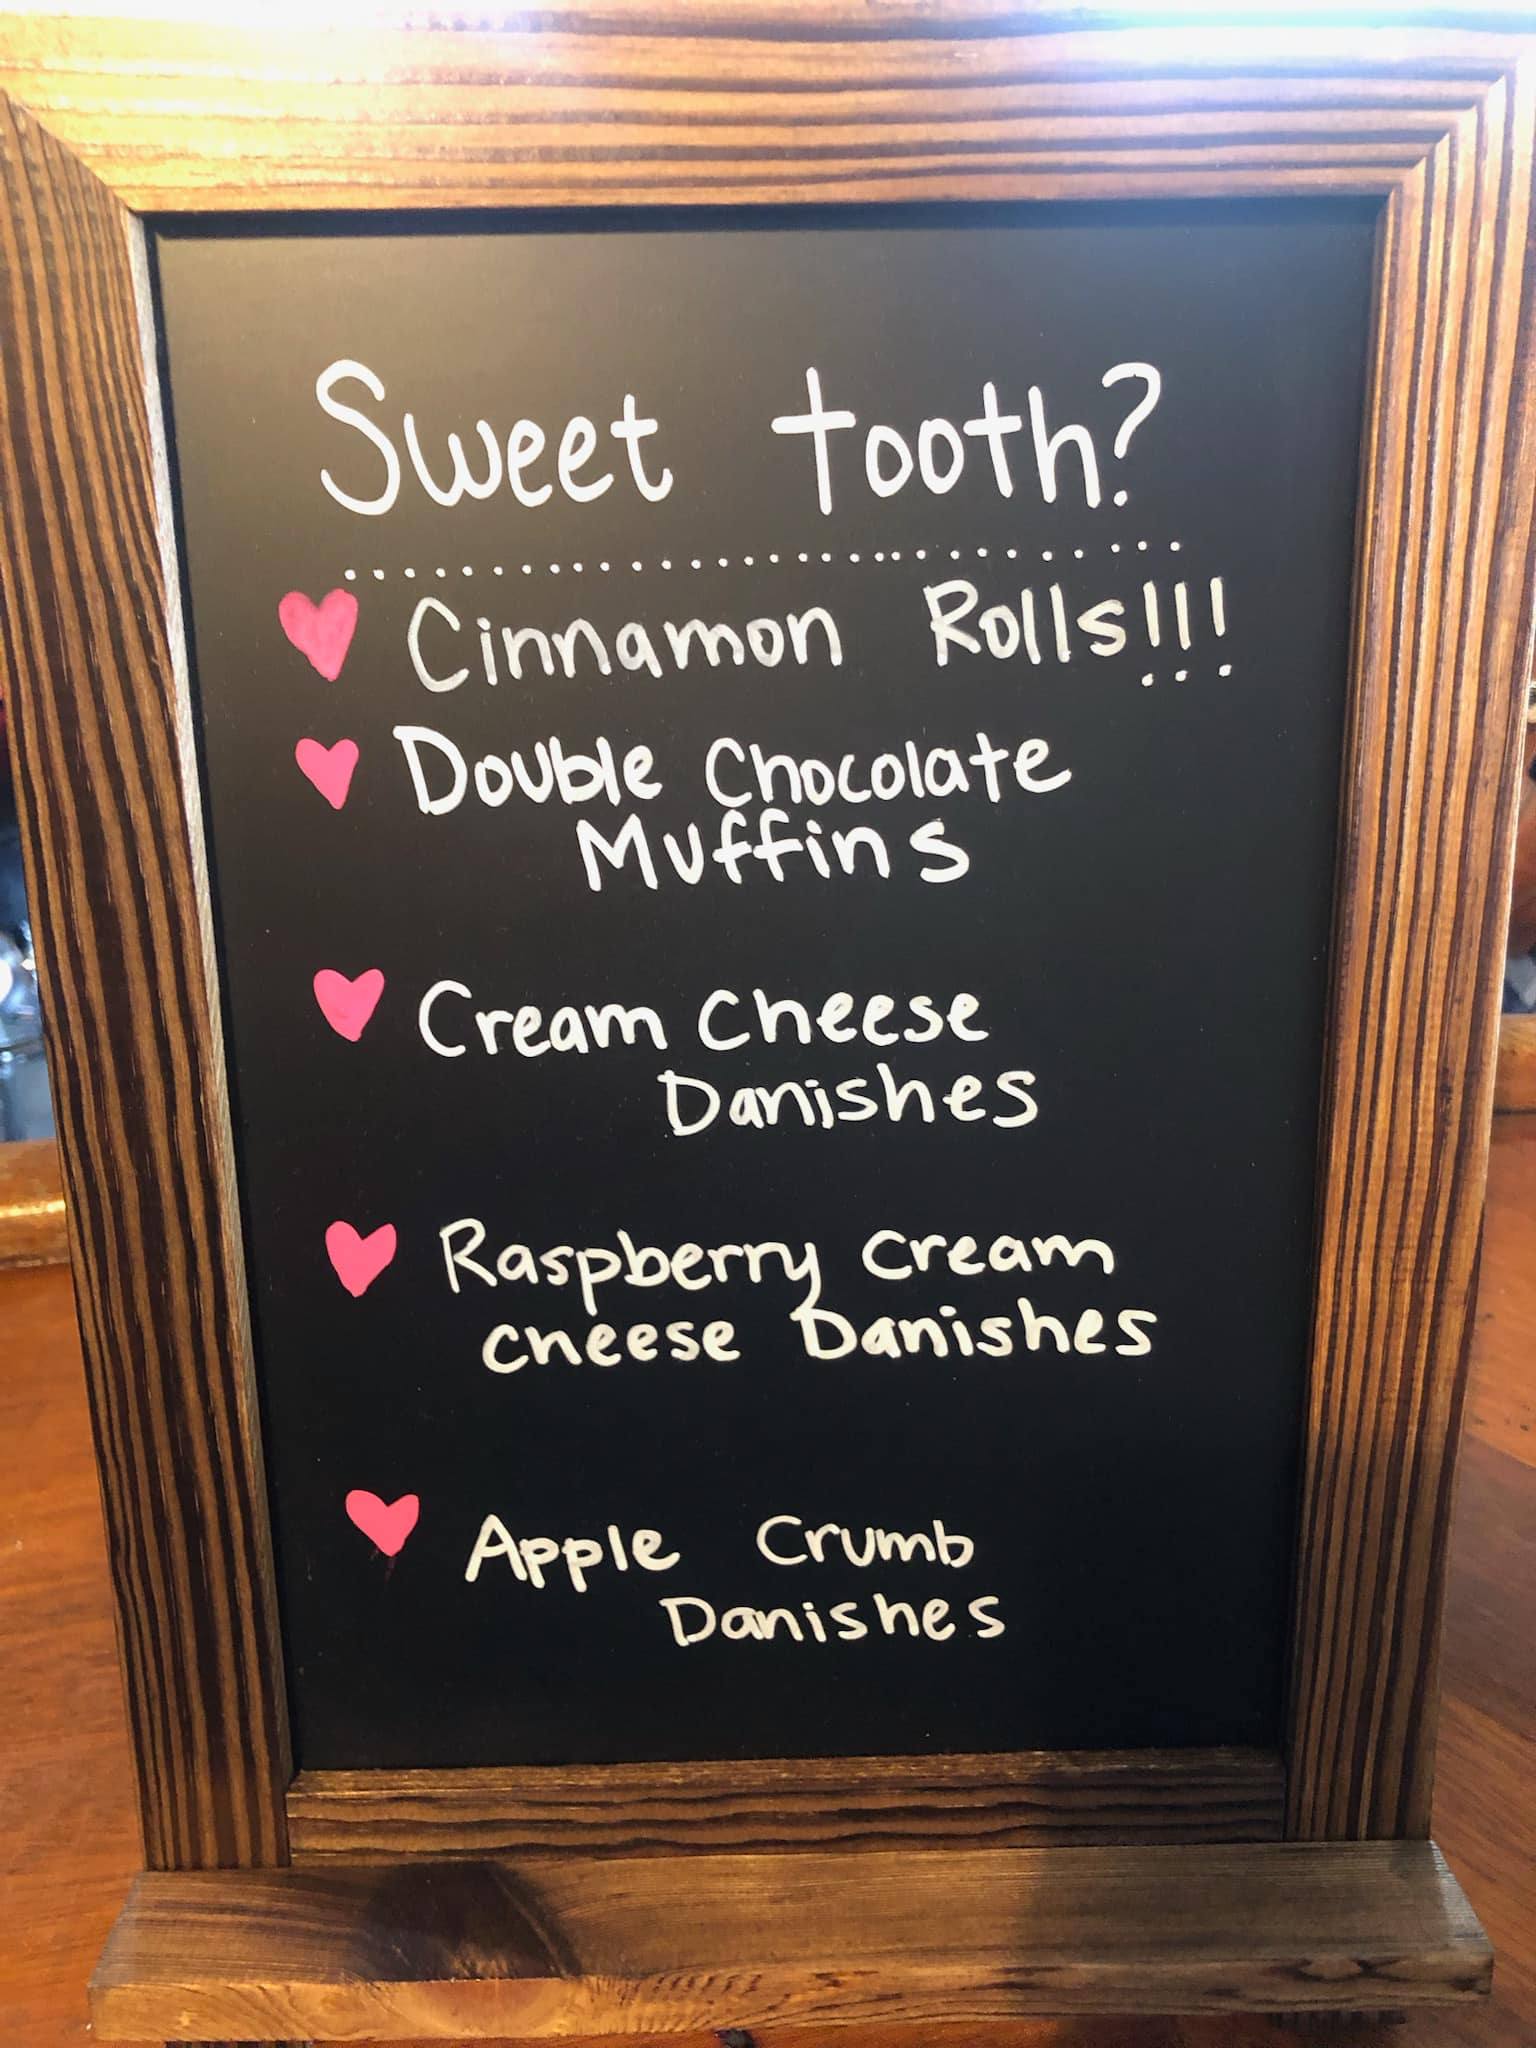 Sweet tooth?
Cinnamon Rolls!!!
Double Chocolate
Muffins
Cream Cheese
Danishes
Raspberry cream
cheese Danishes
Apple Crumb
Danishes